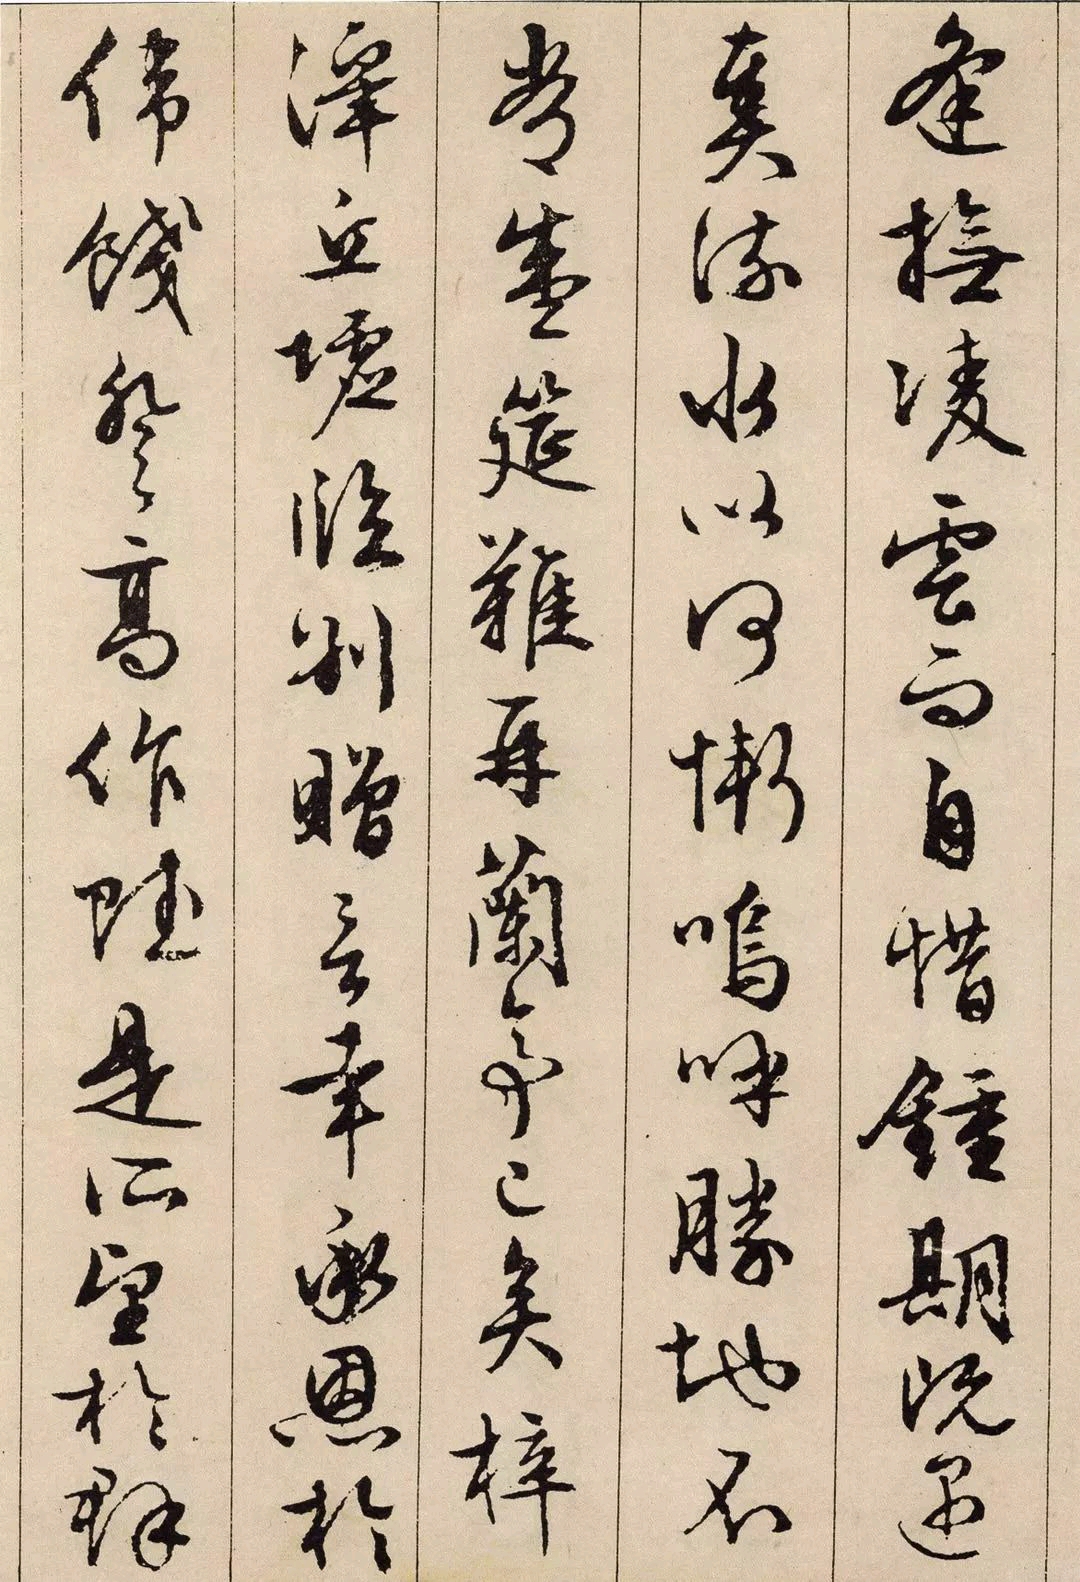 逢撫凌雲而自惜鍾期既遇
奏流水以何慚嗚呼勝地不
常盛筵難再蘭亭已矣梓
澤丘墟臨別贈言幸承恩於
偉餞登高作賦是所望於群